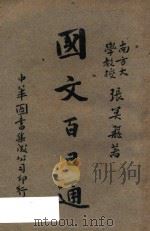 南方大
學教授
張 著
國文百日通
中華圖書集成公司印行